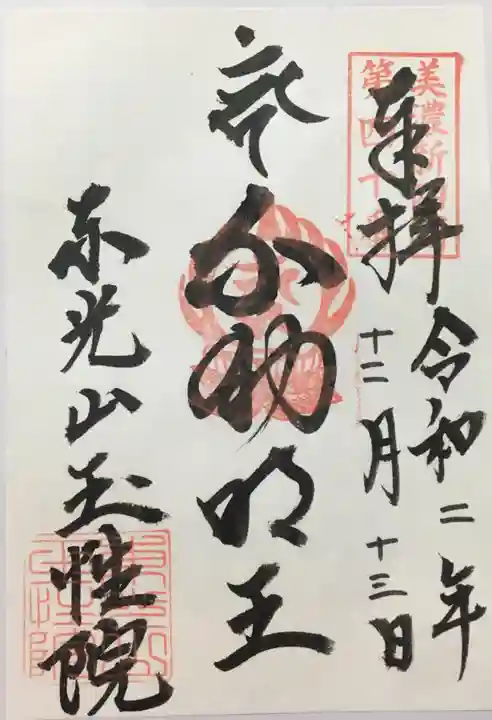 美濃新四国
第四十番
奉拝
令和二年
十二月十三日
不動明王
東光山玉性院